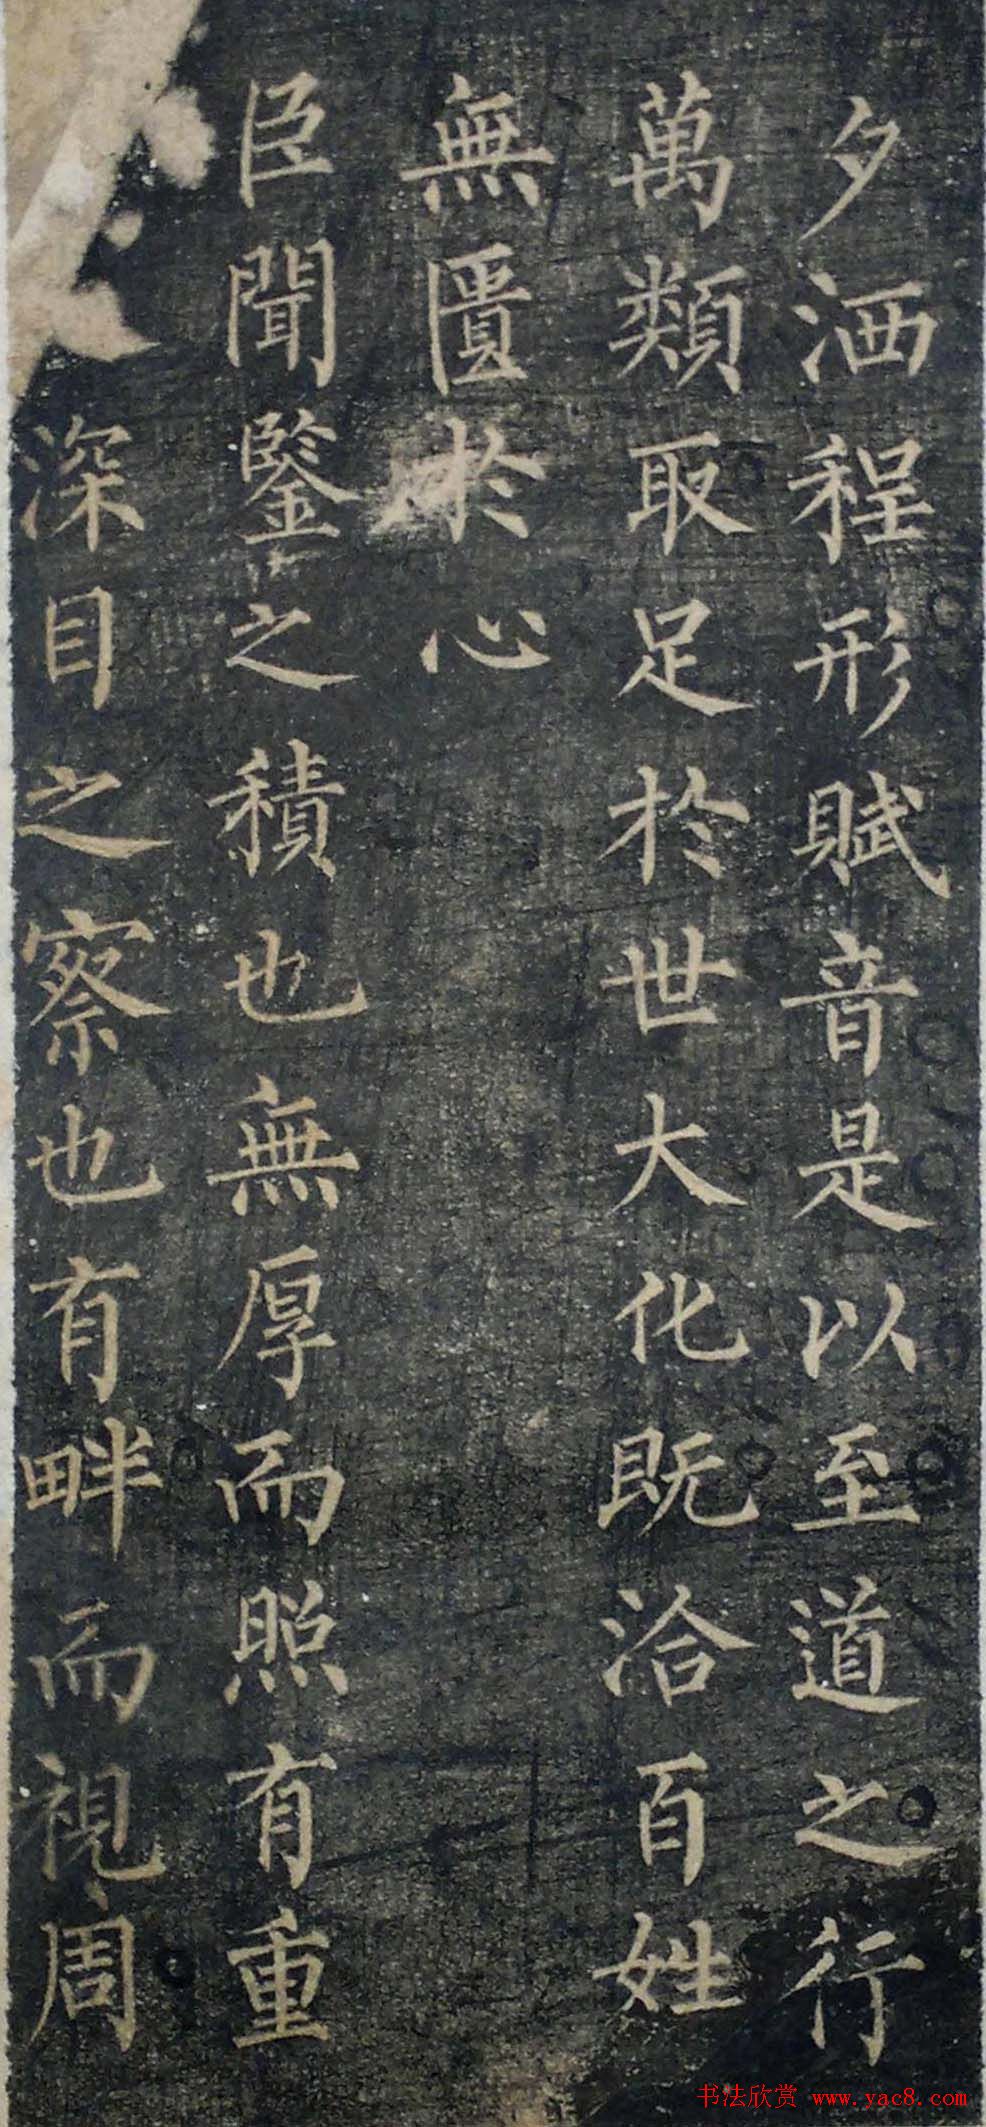 夕洒程形賦音是以至道之行
萬類取足於世大化既洽百姓
無匱於心
臣聞鍳之積也無厚而照有重
深目之察也有畔而視周
书法欣赏 www.yac8.com